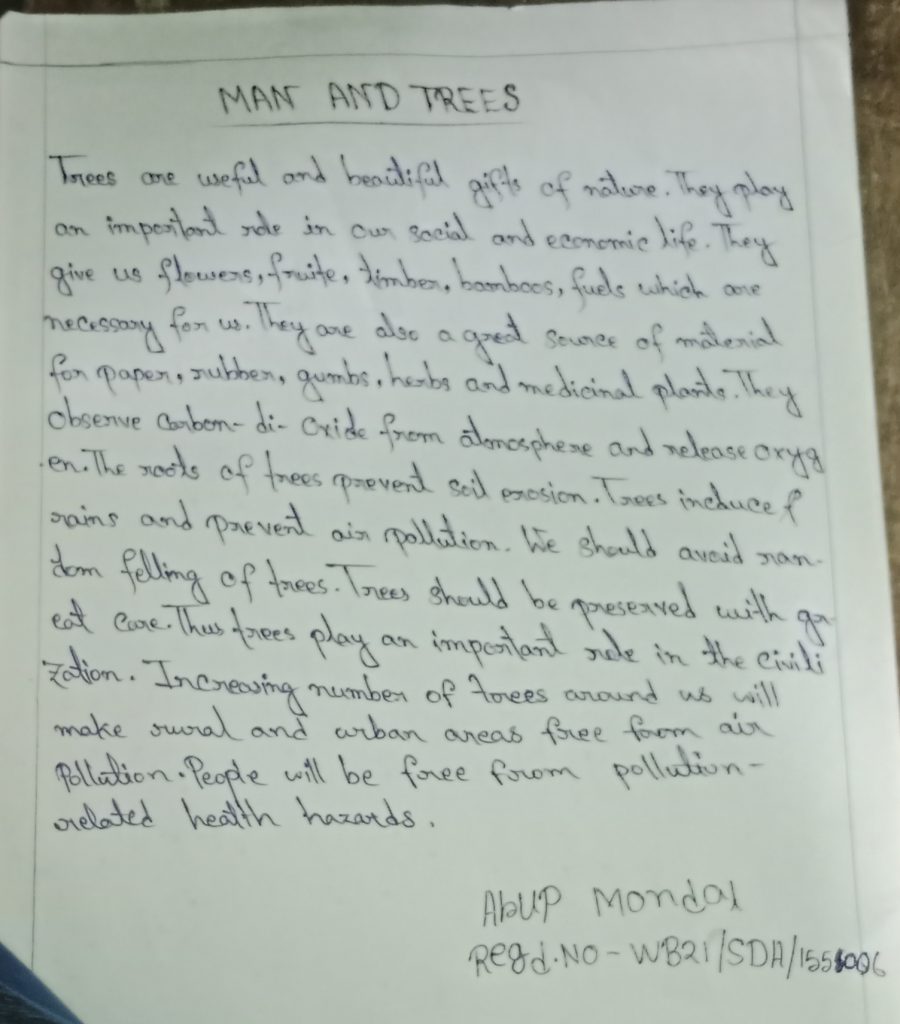 MAN AND TREES
Trees are useful and beautiful gifts of nature. They play
an important role in our social and economic life. They
give us flowers, fruite, timber, bamboos, fuels which are
necessary for us. They are also a great source of material
for paper, rubber, gumbs, herbs and medicinal plants. They
observe Carbon-di-Oxide from atmosphere and release oxyg
en. The roots of trees prevent soil erosion. Trees induce
rains and prevent air pollution. We should avoid ran-
dom felling of trees. Trees should be preserved with gr
eat care. Thus trees play an important role in the civili
zation. Increasing number of trees around us will
make rural and urban areas free from air
Pollution. People will be free from pollution-
related health hazards.
AbUP Mondal
Regd.NO-WB21/SDA/